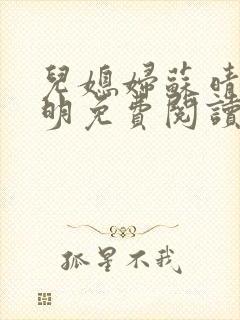 兒媳婦蘇晴
明免費閱讀
孤星不我